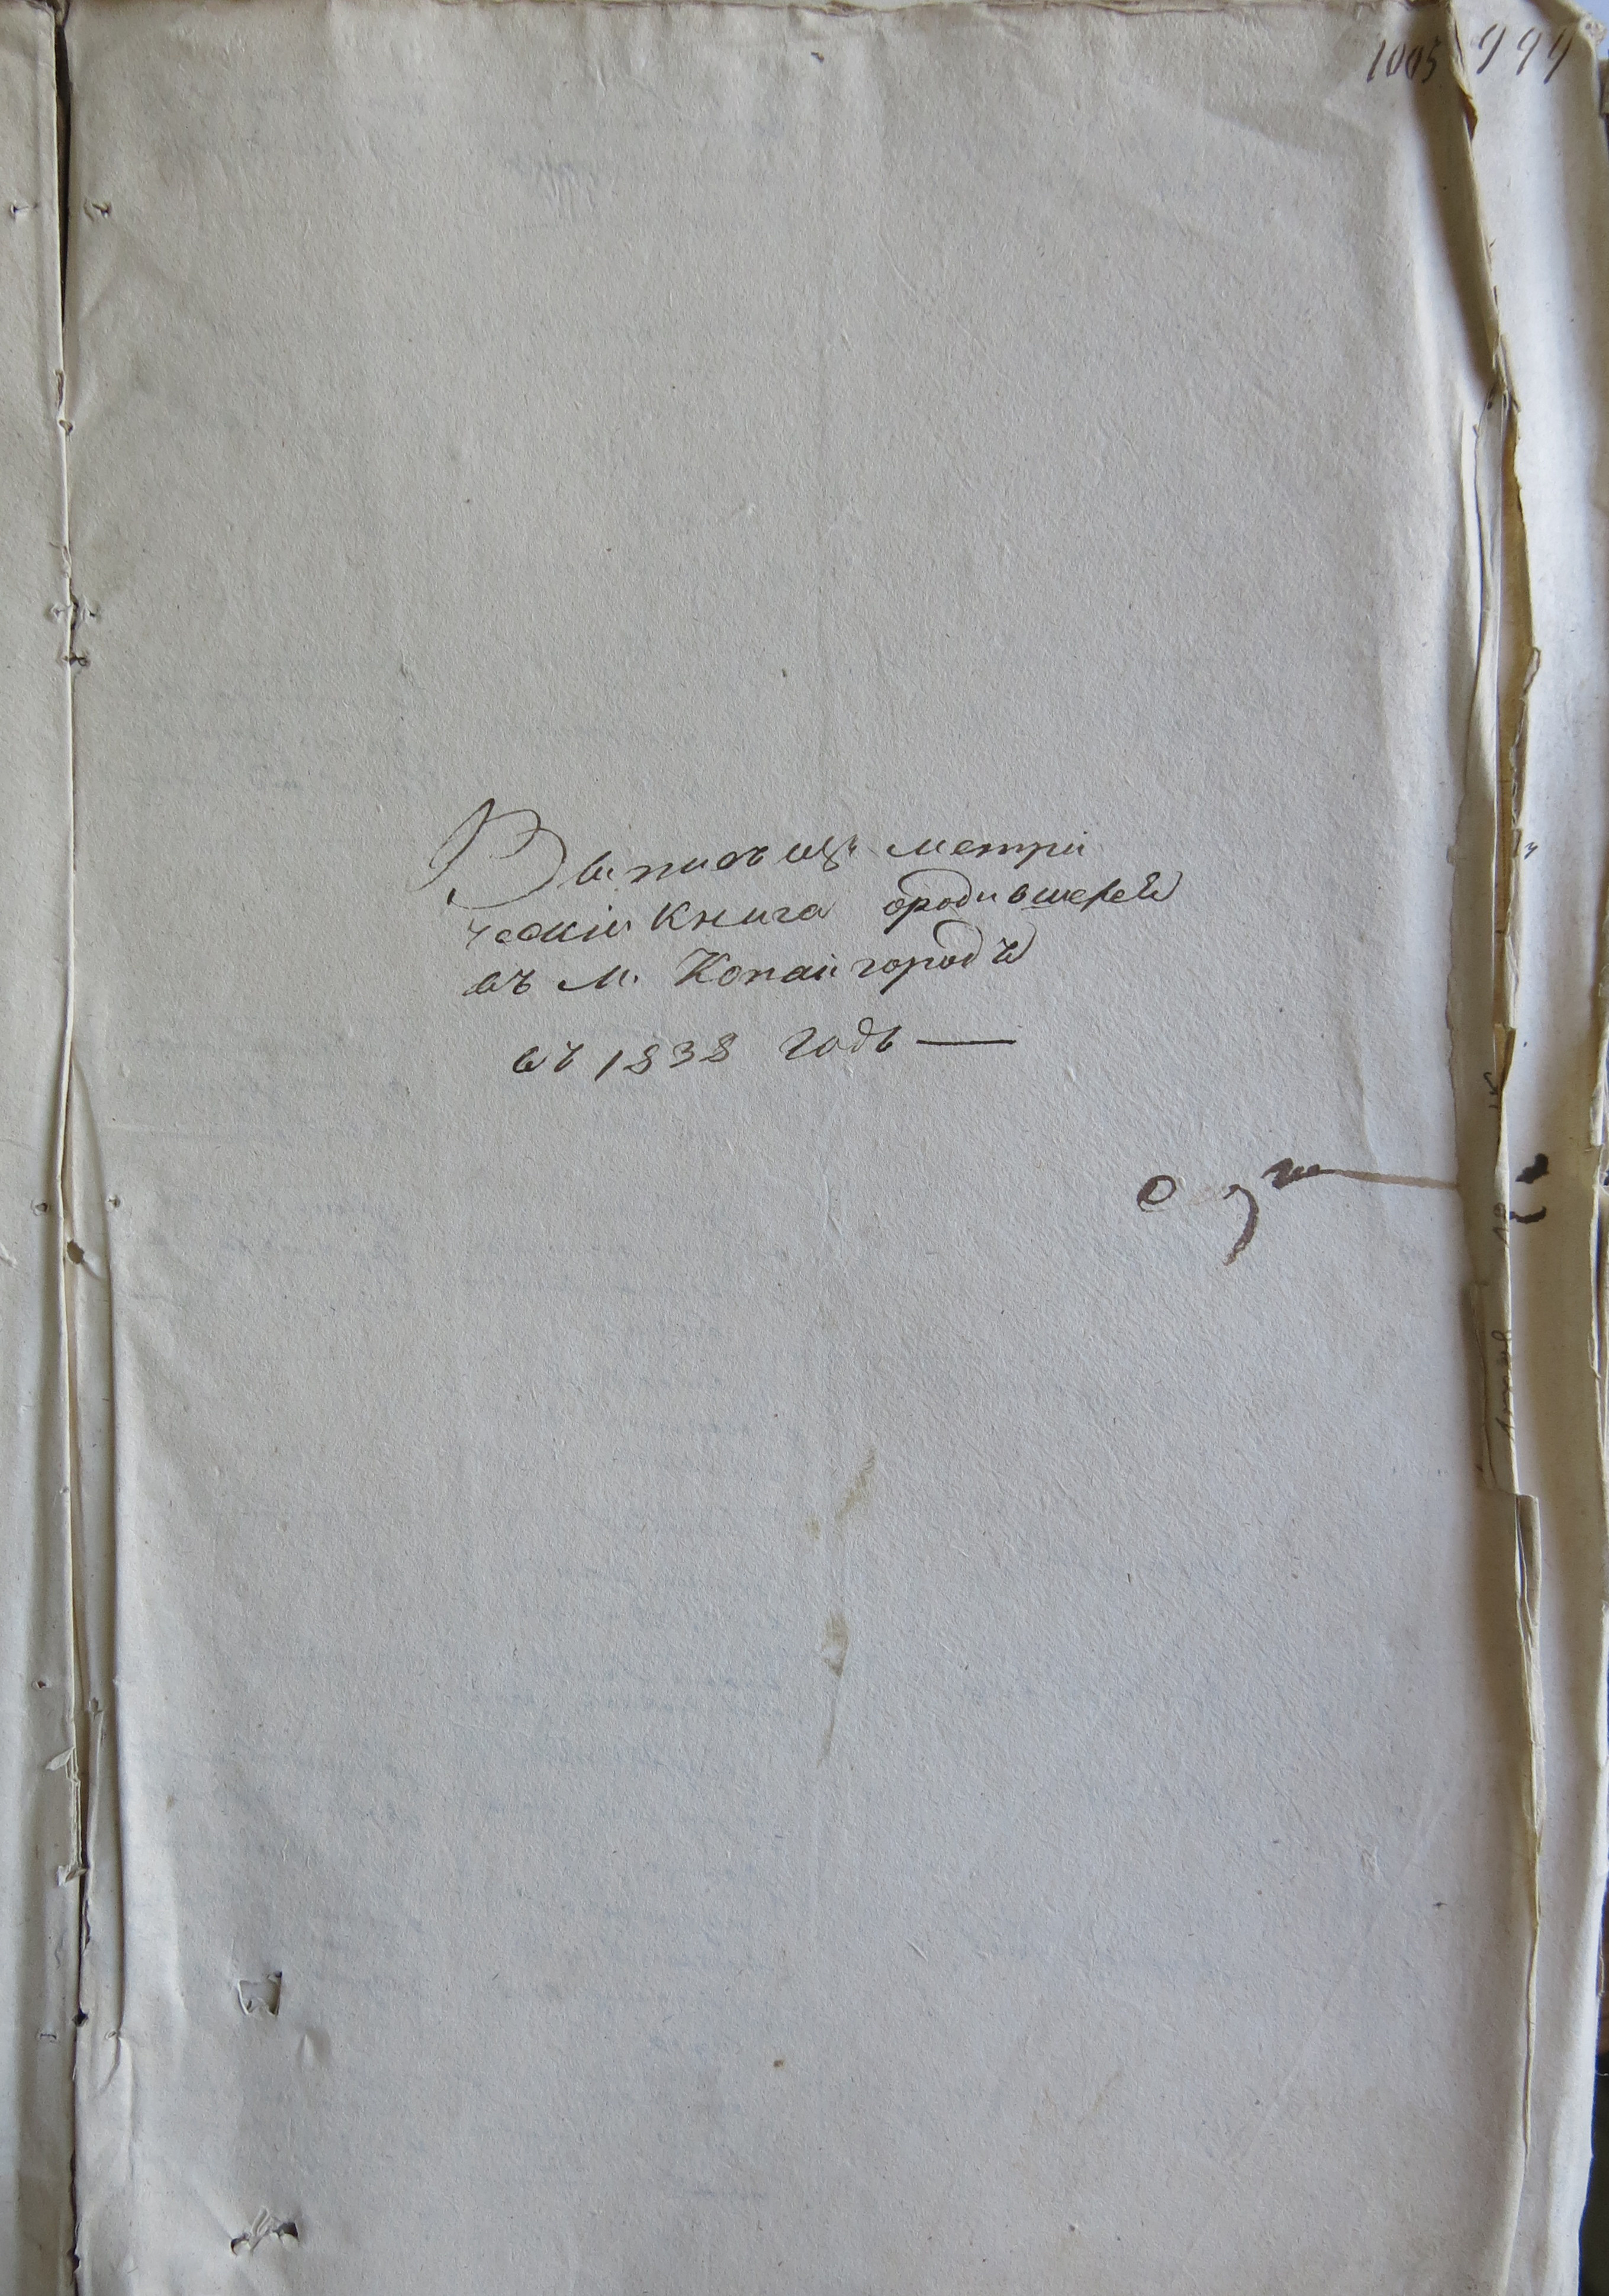 1005 999
Выпись изъ метри
ческій книга ородившехся
въ м. Копайгородѣ
въ 1838 годѣ —